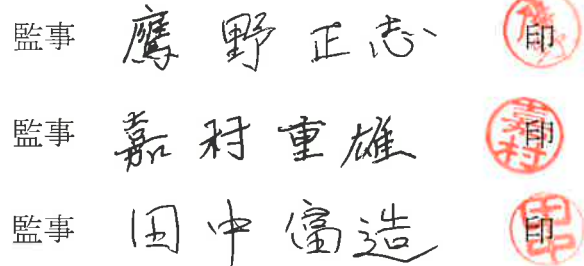 監事 鷹野正志 印
監事 嘉村重雄 印
監事 田中富造 印